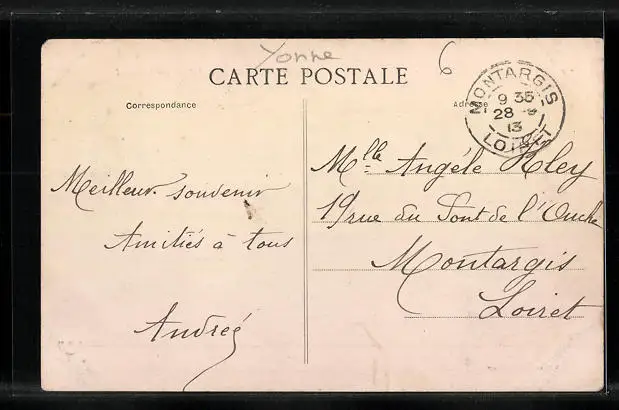 Yonne
6
CARTE POSTALE
Correspondance
Adresse
MONTARGIS
9 35
28
13
LOIRET
Meilleur souvenir
Amitiés à tous
Andrée
Mlle Angèle
19 rue du Pont de l'Ouche
Montargis
Loiret